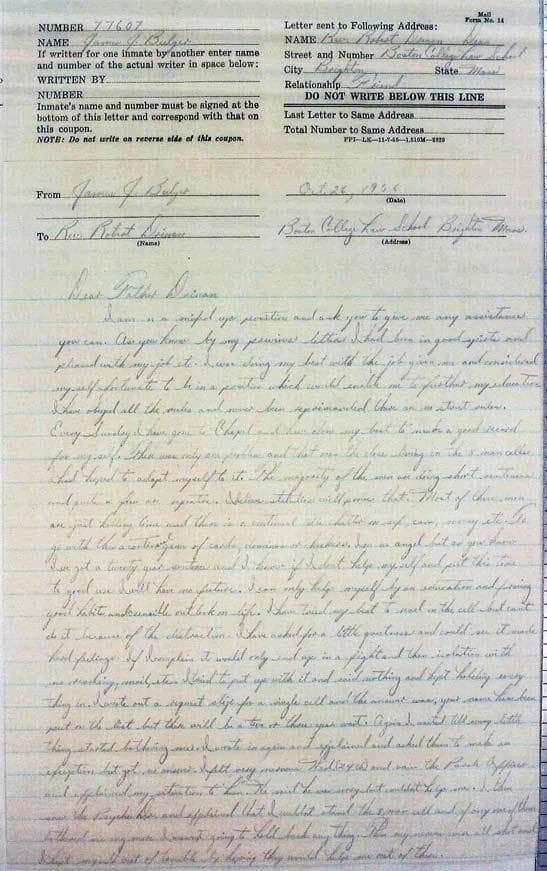 NUMBER 77607
NAME James J Bulger
If written for one inmate by another enter name
and number of the actual writer in space below:
WRITTEN BY
NUMBER
Inmate's name and number must be signed at the
bottom of this letter and correspond with that on
this coupon.
NOTE: Do not write on reverse side of this coupon.
Mail
Form No. 14
Letter sent to Following Address:
NAME Rev. Robert Drinan
Street and Number Boston College Law School
City Brighton State Mass
Relationship Friend
DO NOT WRITE BELOW THIS LINE
Last Letter to Same Address
Total Number to Same Address
FPI—LK—11-7-55—1,510M—2829
From James J. Bulger
Oct. 26, 1956
(Date)
To Rev. Robert Drinan
(Name)
Boston College Law School Brighton Mass.
(Address)
Dear Father Drinan
I am in a mixed up position and ask you to give me any assistance
you can. As you know by my letters I had been in good spirits and
pleased with my job etc. I was doing my best with the job given me and considered
my self fortunate to be in a position which would enable me to further my education.
I have obeyed all the rules and never been reprimanded there on
Every Sunday I have gone to Chapel and have done my best to make a good record
for my self. There was only one problem and that was the close living in the 8 man cell
I had hoped to adapt myself to it. The majority of the men are doing short sentences
and quite a few are repeaters. will prove that. Most of these men
are just killing time and there is a continual chatter on sex, cars, money etc. To
go with this a game of cards, dominos or checkers. I'm no angel but as you know
I've got a twenty year sentence and I know if I don't help myself and put this time
to good use I will have no future. I can only help myself by an education and forming
good habits and sensible outlook on life. I have tried my best to read in the cell but can't
do it because of the distraction. I have asked for a little quietness and could see it made
hard feelings. If I complain it would only end up in a fight and then isolation with
no reading, mail, etc. I tried to put up with it and said nothing and kept holding every
thing in. I wrote out a request slip for a single cell and the answer was, your name has been
put on the list but there will be a two or three year wait. Again I waited till every little
thing started bothering me. I wrote in again and explained and asked them to make an
exception but got no answer. I felt very nervous Wed (24th) and saw the
and explained my situation to Lt. He said he was sorry but couldn't help me. I then
saw the and explained that I couldn't stand the 8 man cell and if any one of them
bothered me any more I wasn't going to hold back any thing. Then my nerves were all shot and
I kept myself out of trouble by hoping they would help me out of there.